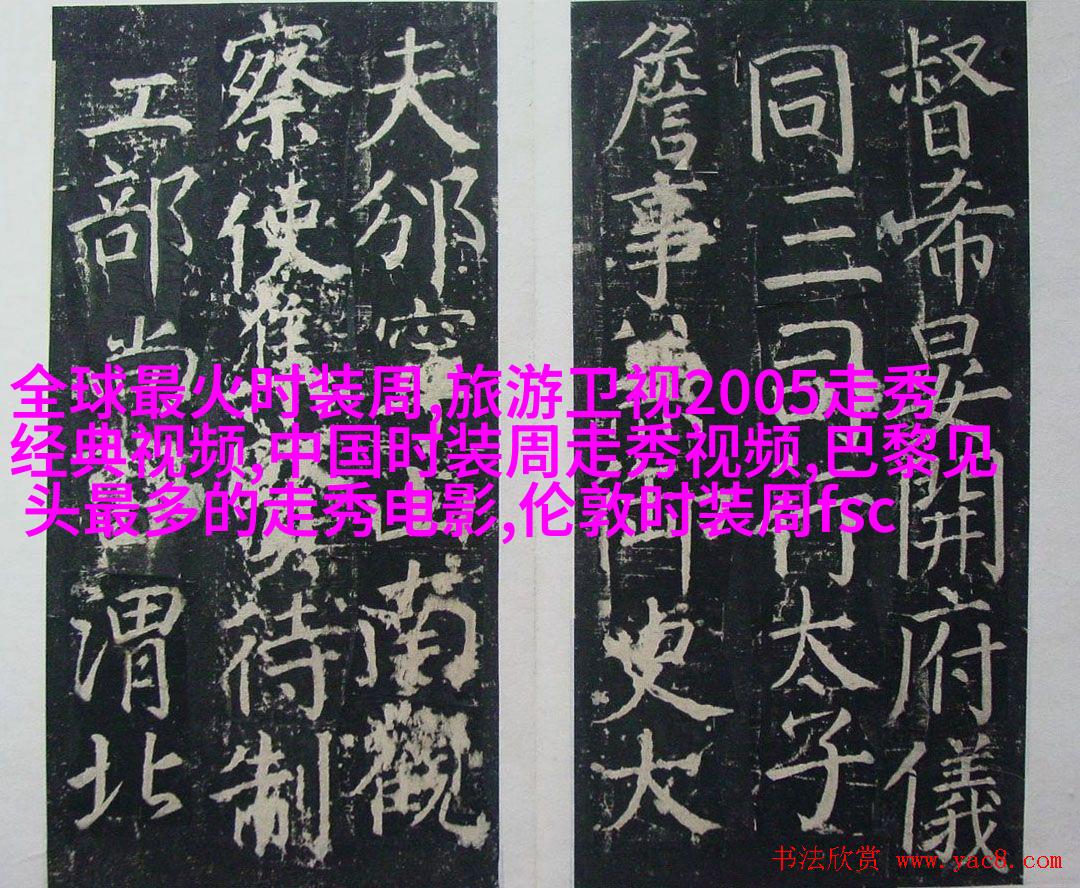 督希晏開府儀
同三司行太子
詹事御史大
夫邠寧南觀
察使待制
工部尚書渭北
全球最火时装周,旅游卫视2005走秀
经典视频,中国时装周走秀视频,巴黎见
头最多的走秀电影,伦敦时装周fsc
书法欣赏 www.yac8.com